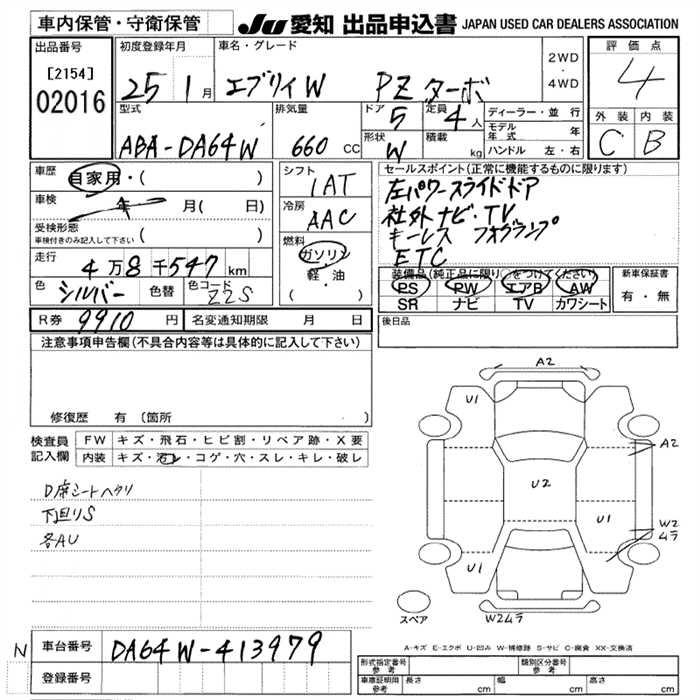 車内保管・守衛保管
JU 愛知 出品申込書 JAPAN USED CAR DEALERS ASSOCIATION
出品番号
[2154]
02016
初度登録年月
25 1月
車名・グレード
エブリイW PZターボ
2WD
・
4WD
評価点
4
型式
ABA-DA64W
排気量
660 CC
ドア
5
定員
4人
形状
W
積載
kg
ディーラー・並行
モデル年式 年
ハンドル 左・右
外装 内装
C B
車歴
自家用・( )
車検
年 月(日)
受検形態
車検付きのみ記入して下さい ( )
走行
4万8千547km
色
シルバー
色替
色コード
Z2S
シフト
IAT
冷房
AAC
燃料
ガソリン
軽・油
( )
セールスポイント(正常に機能するものに限ります)
左パワースライドドア
社外ナビ・TV
キーレス フォグランプ
ETC
装備品(純正品に限り○をつけてください)
PS PW エアB AW
SR ナビ TV カワシート
新車保証書
有・無
R券 9910 円
名変通知期限 月 日
後日品
注意事項申告欄(不具合内容等は具体的に記入して下さい)
修復歴 有(箇所
検査員
記入欄
FW キズ・飛石・ヒビ割・リペア跡・X要
内装 キズ・汚レ・コゲ・穴・スレ・キレ・破レ
D席シートヘタリ
下廻りS
各AU
A2
U1
A2
U2
U1
W2
ムラ
U1
スペア
W2ムラ
A-キズ E-エクボ U-凹み W-補修跡 S-サビ C-腐食 XX-交換済
N 車台番号 DA64W-413979
登録番号
形式指定番号
参考
類別区分番号
参考
車庫証明用
参考
長さ cm 幅 cm 高さ cm